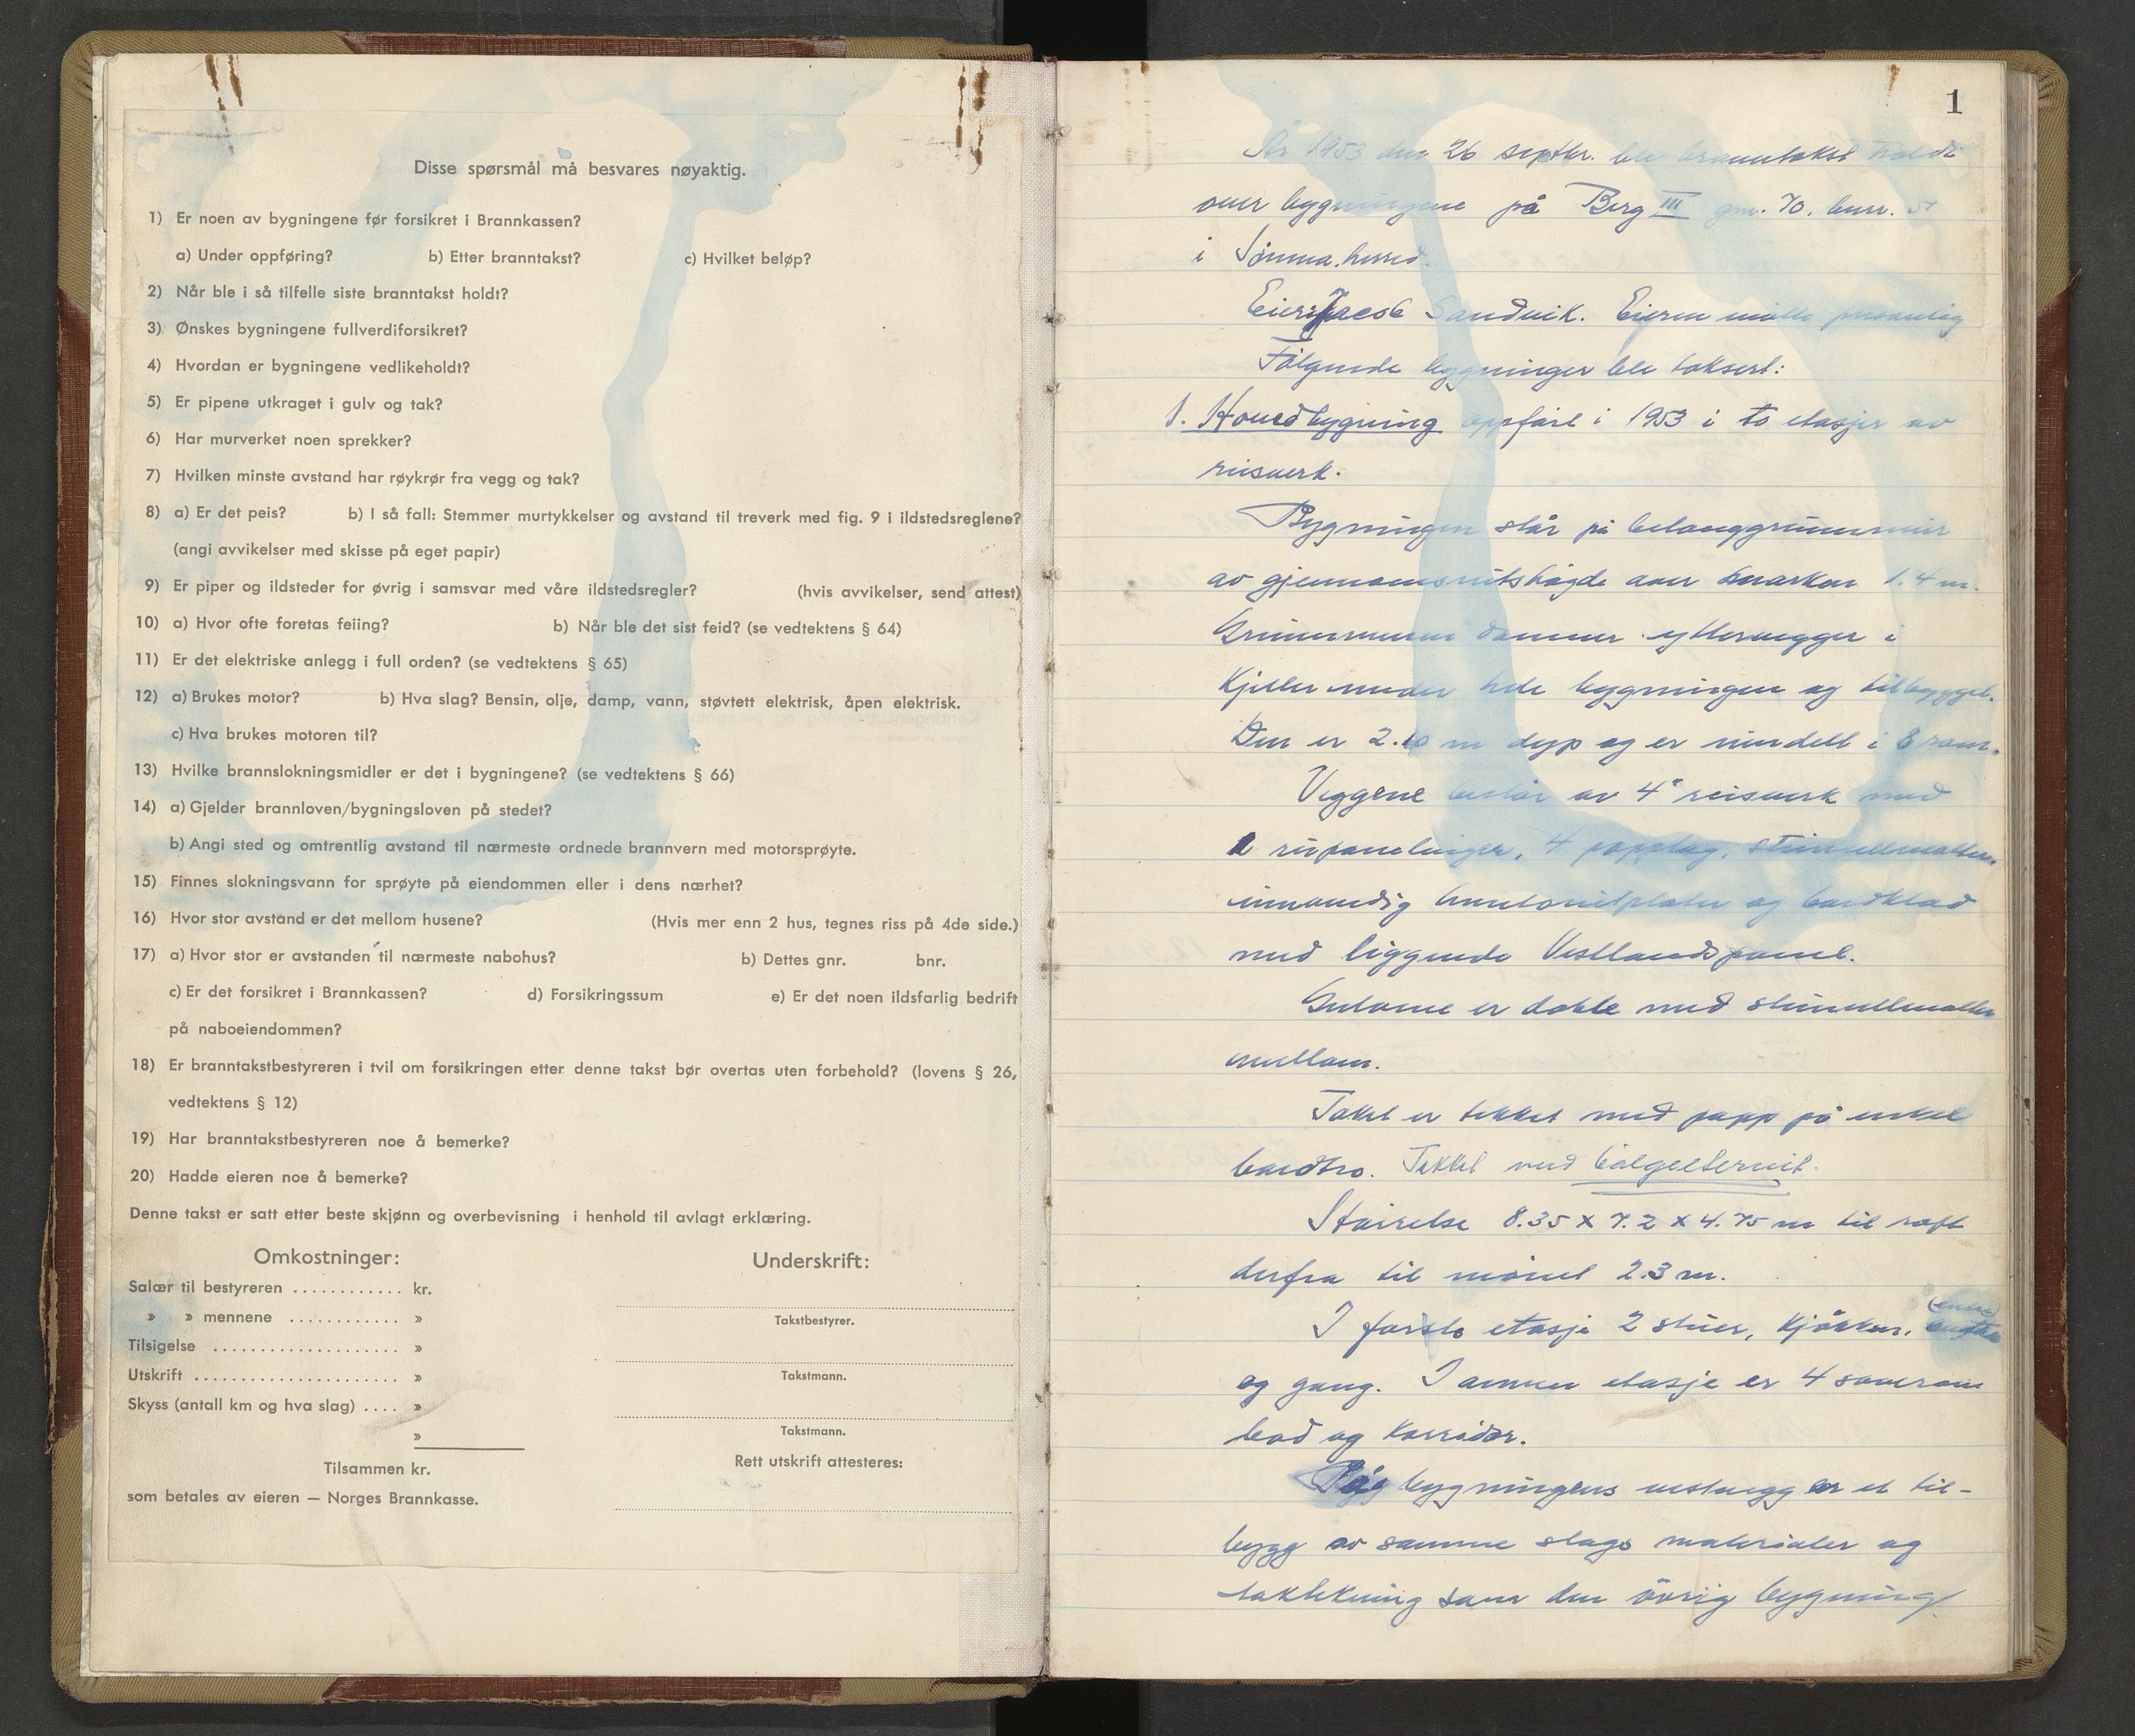 Disse spørsmål må besvares nøyaktig.
1) Er noen av bygningene før forsikret i Brannkassen?
a) Under oppføring? b) Etter branntakst? c) Hvilket beløp?
2) Når ble i så tilfelle siste branntakst holdt?
3) Ønskes bygningene fullverdiforsikret?
4) Hvordan er bygningene vedlikeholdt?
5) Er pipene utkraget i gulv og tak?
6) Har murverket noen sprekker?
7) Hvilken minste avstand har røykrør fra vegg og tak?
8) a) Er det peis? b) I så fall: Stemmer murtykkelser og avstand til treverk med fig. 9 i ildstedsreglene?
(angi avvikelser med skisse på eget papir)
9) Er piper og ildsteder for øvrig i samsvar med våre ildstedsregler? (hvis avvikelser, send attest)
10) a) Hvor ofte foretas feiing? b) Når ble det sist feid? (se vedtektens § 64)
11) Er det elektriske anlegg i full orden? (se vedtektens § 65)
12) a) Brukes motor? b) Hva slag? Bensin, olje, damp, vann, støvtett elektrisk, åpen elektrisk.
c) Hva brukes motoren til?
13) Hvilke brannslokningsmidler er det i bygningene? (se vedtektens § 66)
14) a) Gjelder brannloven/bygningsloven på stedet?
b) Angi sted og omtrentlig avstand til nærmeste ordnede brannvern med motorsprøyte.
15) Finnes slokningsvann for sprøyte på eiendommen eller i dens nærhet?
16) Hvor stor avstand er det mellom husene? (Hvis mer enn 2 hus, tegnes riss på 4de side.)
17) a) Hvor stor er avstanden til nærmeste nabohus? b) Dettes gnr. bnr.
c) Er det forsikret i Brannkassen? d) Forsikringssum e) Er det noen ildsfarlig bedrift
på naboeiendommen?
18) Er branntakstbestyreren i tvil om forsikringen etter denne takst bør overtas uten forbehold? (lovens § 26,
vedtektens § 12)
19) Har branntakstbestyreren noe å bemerke?
20) Hadde eieren noe å bemerke?
Denne takst er satt etter beste skjønn og overbevisning i henhold til avlagt erklæring.
Omkostninger:
Salær til bestyreren ............ kr.
» » mennene ............ »
Tilsigelse .................... »
Utskrift ...................... »
Skyss (antall km og hva slag) .... »
»
Tilsammen kr.
som betales av eieren — Norges Brannkasse.
Underskrift:
Takstbestyrer.
Takstmann.
Takstmann.
Rett utskrift attesteres:
1
År 1953 den 26 septbr. ble branntakst holdt
over bygningene på Berg III gnr. 70. bnr. 51
i Sömna herred.
Eier: Jacob Sandvik. Eieren møtte personlig
Følgende bygninger ble taksert:
1. Hovedbygning oppført i 1953 i to etasjer av
reisverk.
Bygningen står på betonggrunnmur
av gjennomsnitshøgde over marken 1.4 m.
Grunnmuren danner yttervegger i
kjeller under hele bygningen og tilbygget.
Den er 2.10 m dyp og er inndelt i 8 rom.
Veggene består av 4" reisverk med
2 rupanelinger, 4 papplag, steinullmatter,
innvendig huntonitplater og bordklædd
med liggende Vestlandspanel.
Gulvene er doble med steinullmatter
mellom.
Taket er tekket med papp på enkel
bordtro. Tekket med bølgeeternit.
Störrelse 8.35 x 7.2 x 4.75 m til raft
derfra til mönet 2.3 m.
I første etasje 2 stuer, kjøkken,
og gang. I annen etasje er 4 soverom
bad og korridor.
På bygningens vestvegg er et til-
bygg av samme slags materialer og
taktekking som den övrig bygning